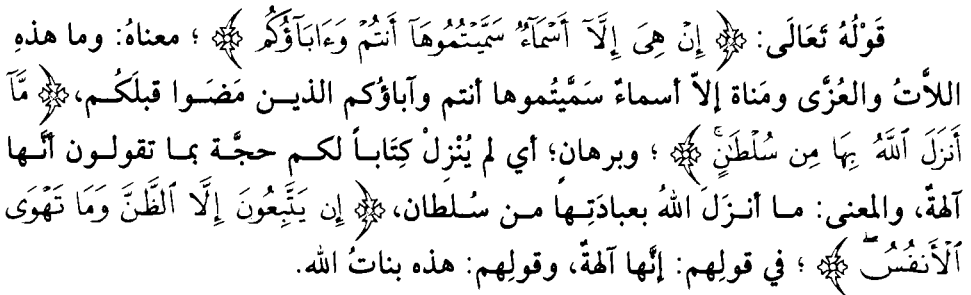 قَوْلُهُ تَعَالَى: ﴿ إِنْ هِىَ إِلَّآ أَسْمَآءٌ سَمَّيْتُمُوهَآ أَنتُمْ وَءَابَآؤُكُم ﴾ ؛ معناهُ: وما هذهِ
اللاَّتُ والعُزَّى ومَناة إلاّ أسماءٌ سَمَّيتُموها أنتم وآباؤكم الذيـن مَضَـوا قبلَكُـم، ﴿ مَّآ
أَنزَلَ ٱللَّهُ بِهَا مِن سُلْطَٰنٍۚ ﴾ ؛ وبرهانٍ؛ أي لم يُنْزِلْ كِتَاباً لكـم حجَّـة بمـا تقولـون أنَّـها
آلهةٌ، والمعنى: مـا أنـزَلَ اللهُ بعبادَتِـها مـن سُـلطان، ﴿ إِن يَتَّبِعُونَ إِلَّا ٱلظَّنَّ وَمَا تَهْوَى
ٱلْأَنفُسُۖ ﴾ ؛ في قولِهم: إنَّها آلهةٌ، وقولِهم: هذه بناتُ الله.